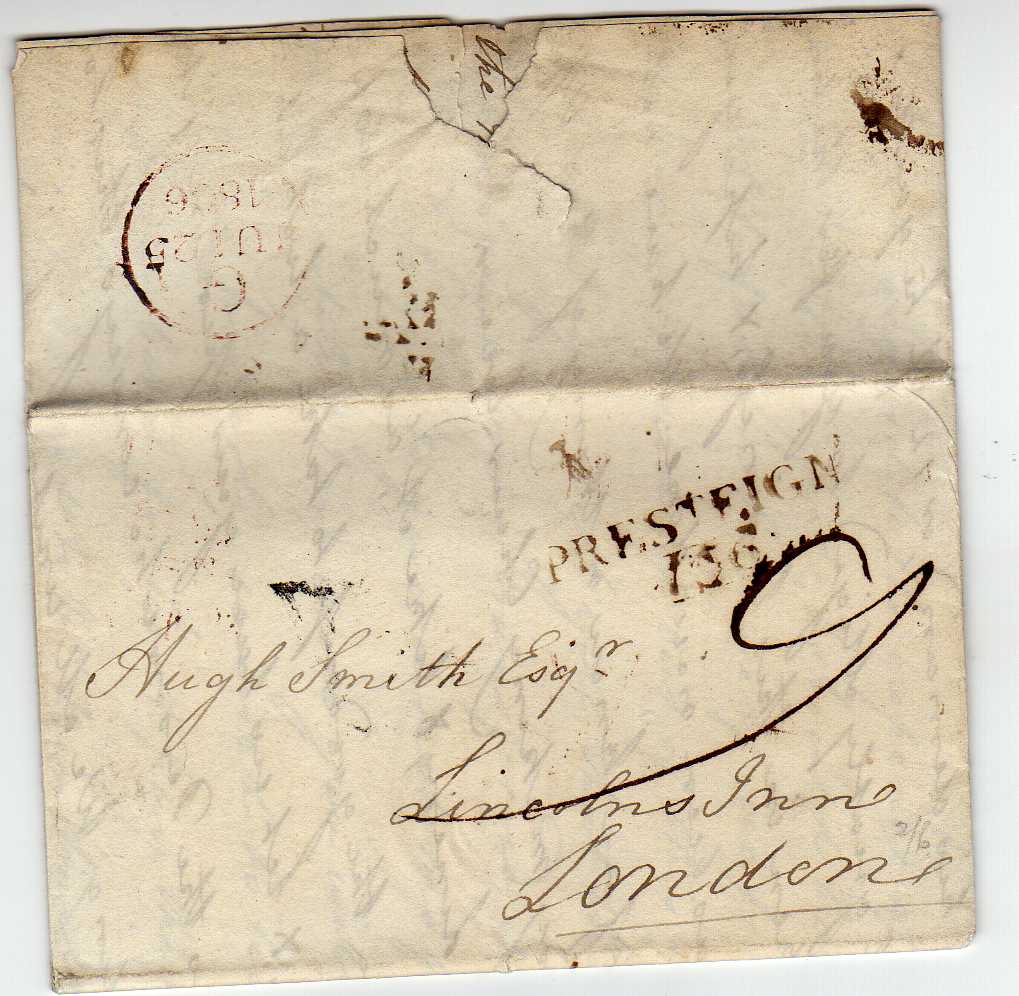 the
G
JU 25
1806
PRESTEIGN
Hugh Smith Esqr.
9
Lincolns Inn
2/6
London